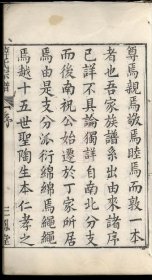 尊焉親焉敬焉睦焉而敦一本
者也吾家族譜系出由來諸序
已詳不具論獨詳自南北分支
而後南祝公始遷於丁家所居
焉由是支分派衍綿綿焉繩繩
焉越十五世聖陶生本仁孝之